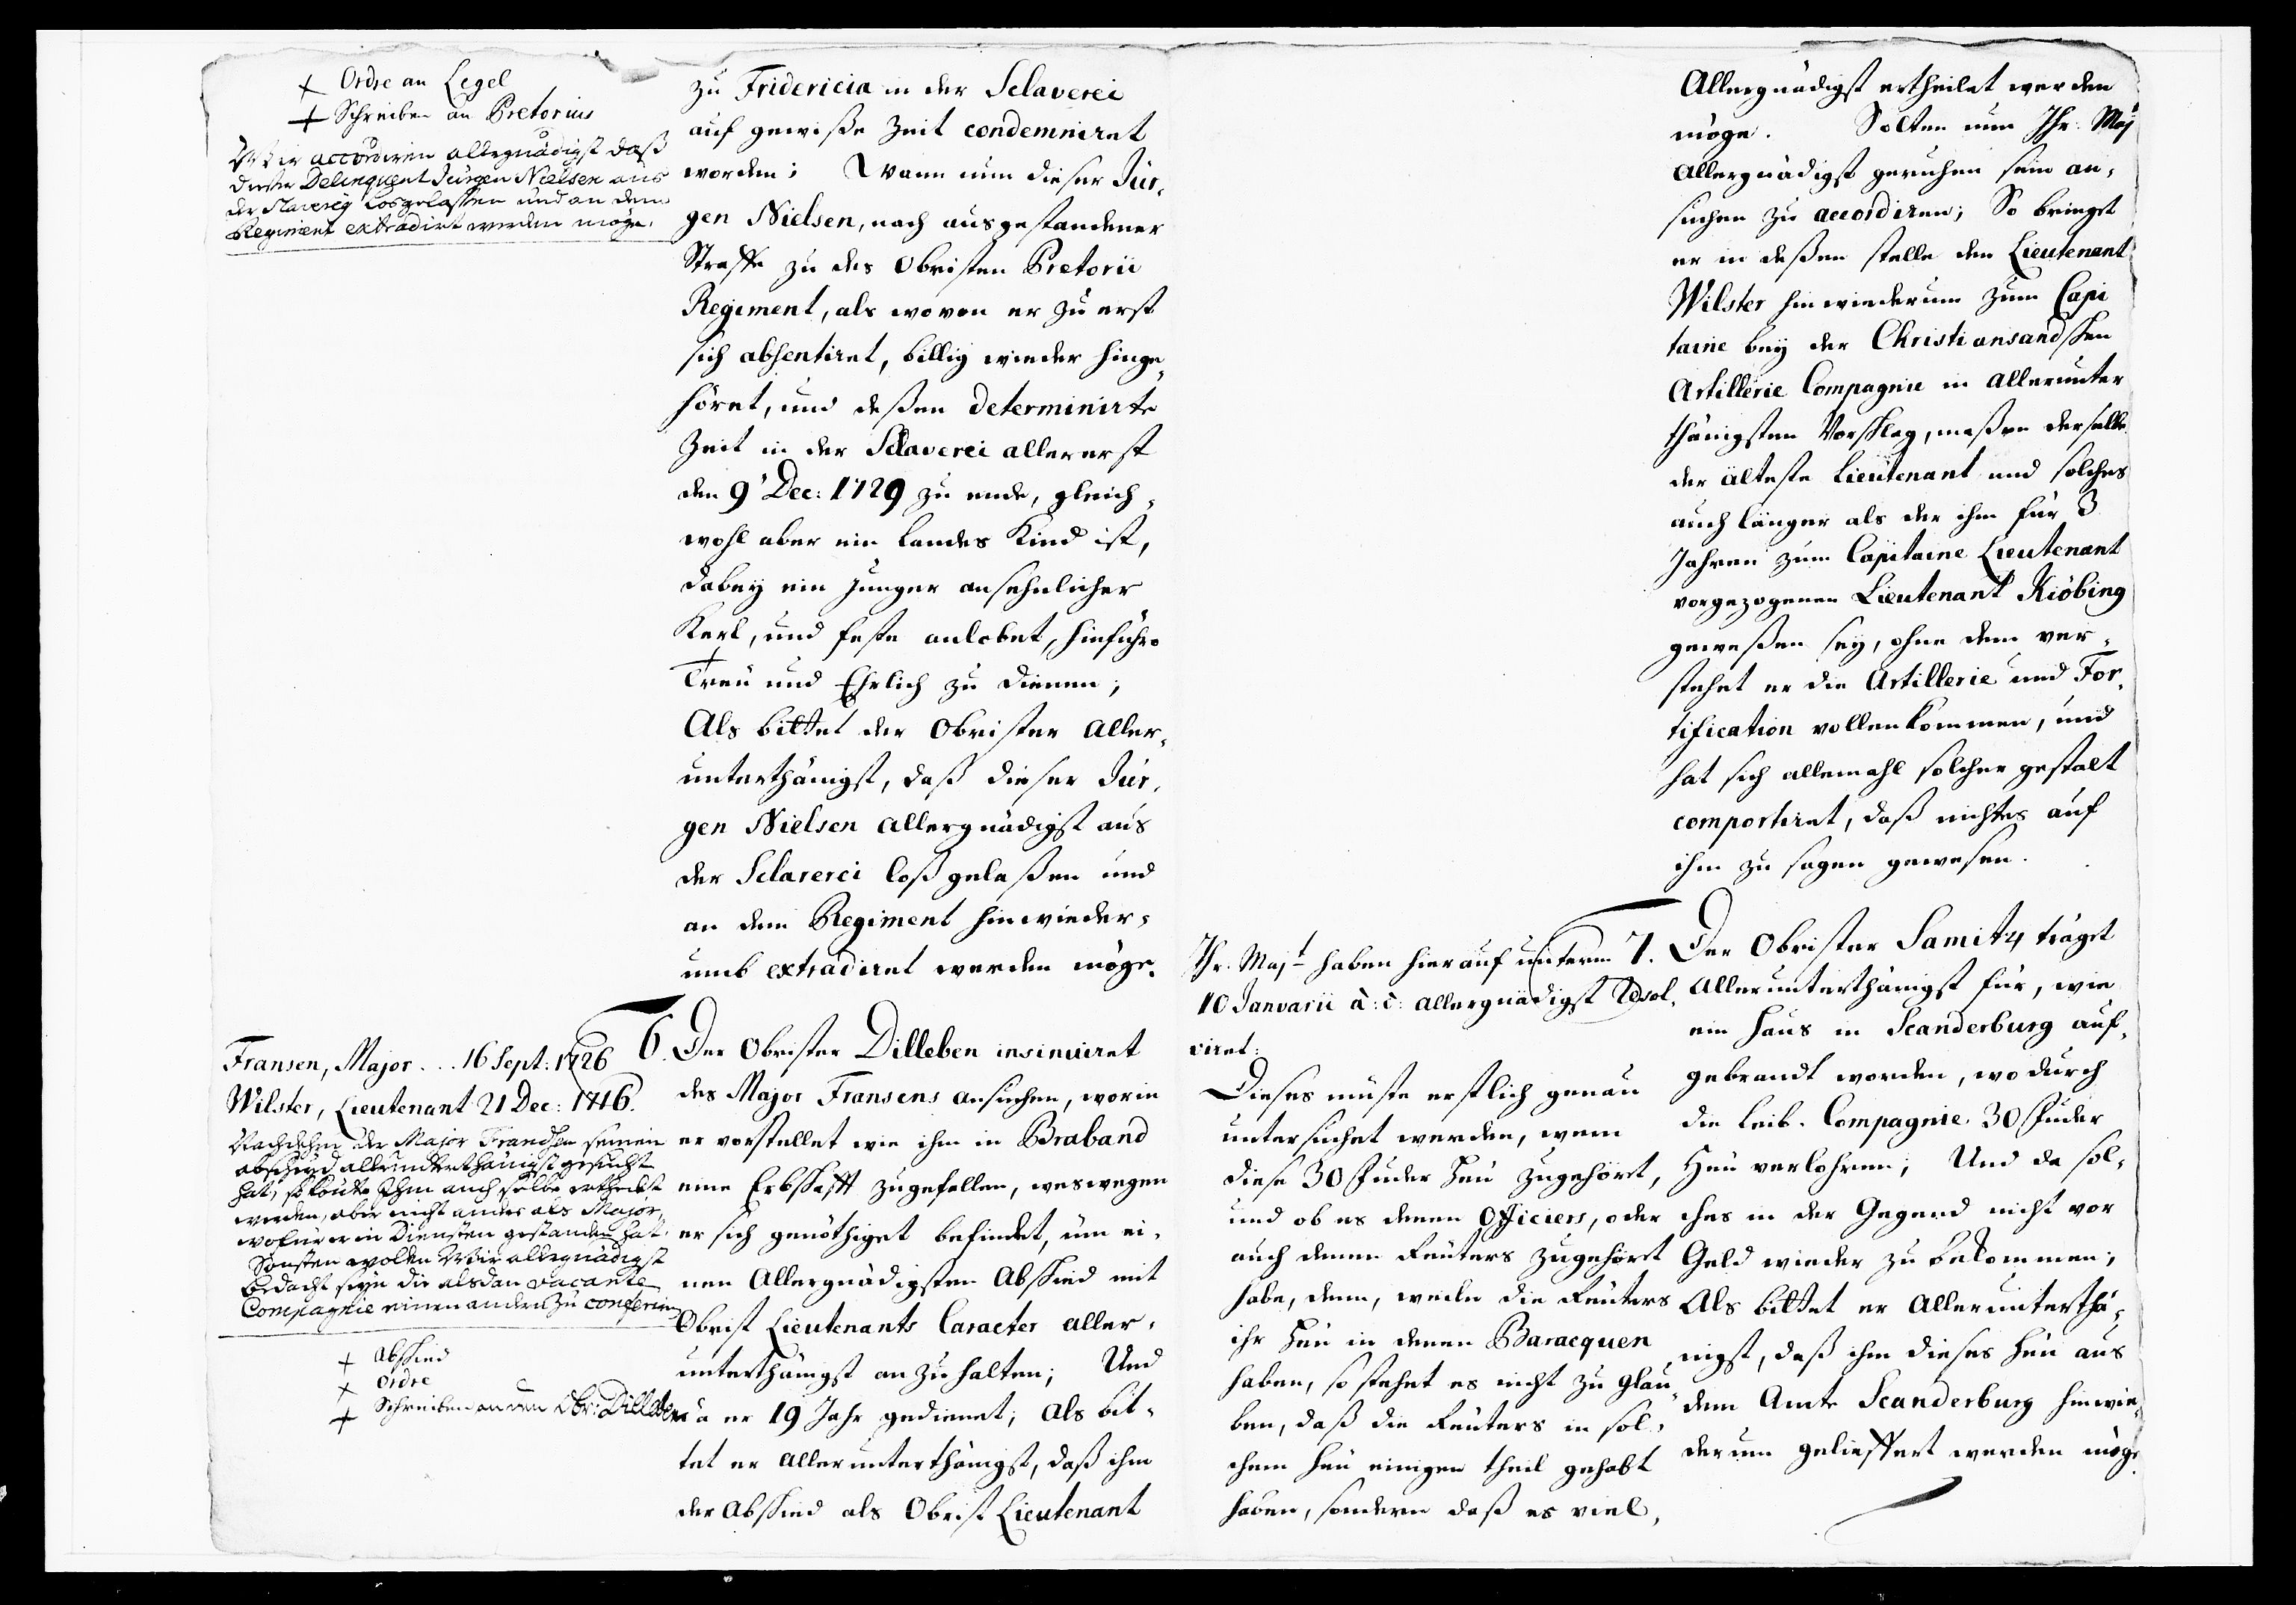 Ordre an Legel
Schreiben an Pretorius
Wir accordiren allergnädigst daß
dieser Delinquent Jürgen Nielsen aus
der Slaverey losgelassen und an dem
Regiment extradirt werden möge.
zu Fridericia in der Sclaverei
auf gewiße Zeit condemniret
worden; Wann nun dieser Jür,
gen Nielsen, nach ausgestandener
Straffe zu des Obristen Pretorii
Regiment, als wovon er zu erst
sich absentiret, billig wieder hinge,
höret, und deßen determinirte
Zeit in der Sclaverei allererst
den 9' Dec: 1729 zu ende, gleich,
wohl aber ein Landes Kind ist,
dabey ein junger ansehnlicher
Kerl, und feste anlobet, hinführo
Treu und Ehrlich zu dienen;
Als bittet der Obrister Aller,
unterthänigst, daß dieser Jür,
gen Nielsen allergnädigst aus
der Sclaverei loßgelaßen und
an dem Regiment hinwieder,
umb extradiret werden möge.
Fransen, Major . . . 16 Sept: 1726
Wilster, Lieutenant 21 Dec: 1716.
Nachdehm der Major Frandsen seinen
abschied allerunterthänigst gesucht
hat, so könte Ihm auch selbe ertheilet
werden, aber nicht anders als Major,
wofür er in Diensten gestanden hat.
Sonsten wolen Wir allergnädigst
bedacht seyn die alsdan vacante
Compagnie einen andern zu conferiren
Abschied
Ordre
Schreiben an den Obr: Dilleben
6. Der Obrister Dilleben insinuiret
des Major Fransens ansuchen, worin
er vorstellet wie ihm in Braband
eine Erbschafft zugefallen, weswegen
er sich genöthiget befindet, um ei,
nen Allergnädigsten Abschied mit
Obrist Lieutenants Caracter aller,
unterthänigst anzuhalten; Und
da er 19 Jahr gedienet; Als bit,
tet er allerunterthänigst, daß ihm
der Abschied als Obrist Lieutenant
Allergnädigst ertheilet werden
möge. Solten nun Ihr: Maj
Allergnädigst geruhen sein an,
suchen zu accordiren; So bringet
er in deßen stelle den Lieutenant
Wilster hinwiederum zum Capi
taine bey der Christiansandschen
Artillerie Compagnie in allerunter
thänigsten Vorschlag, maßen derselbe
der älteste Lieutenant und solches
auch länger als der ihm für 3
Jahren zum Capitaine Lieutenant
vorgezogenen Lieutenant Kiöbing
geweßen sey, ohne dem ver,
stehet er die Artillerie und For,
tification vollenkommen, und
hat sich allemahl solcher gestalt
comportiret, daß nichtes auf
ihm zu sagen gewesen.
Ihr. Majt haben hierauf unterm
10 Januarii a: c: allergnädigst resol,
viret:
Dieses müste erstlich genau
untersuchet werden, wem
diese 30 Fuder Heu zugehört,
und ob es denen Officiers, oder
auch denen Reuters zugehört
habe, denn, weilen die Reuters
ihr Heu in denen Baracquen
haben, so stehet es nicht zu glau,
ben, daß die Reuters in sol,
chem Heu einigen theil gehabt
haben, sondern daß es viel,
7. Der Obrister Samitz träget
Allerunterthänigst für, wie
ein Haus in Scanderburg auf,
gebrandt worden, wodurch
die Leib-Compagnie 30 Fuder
Heu verlohren; Und da sol,
ches in der Gegend nicht vor
Geld wieder zu bekommen;
Als bittet er Allerunterthä,
nigst, daß ihm dieses Heu aus
dem Amte Scanderburg hinwie,
derum gelieffert werden möge